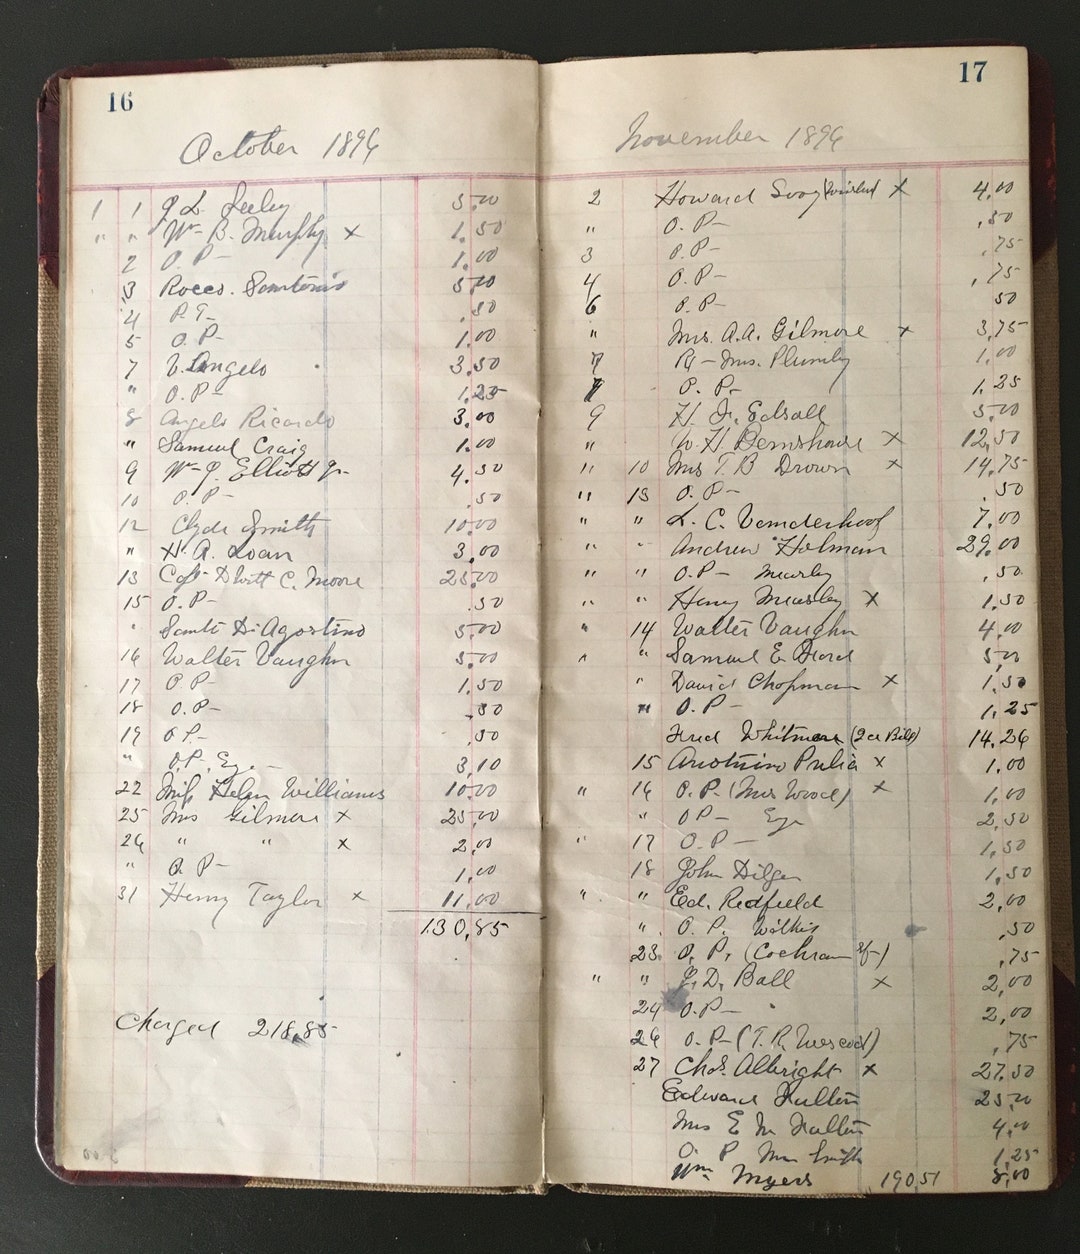 16
October 1896
1 1 J. L. Seeley 5.00
" " Wm B. Murphy x 1.50
2 O.P— 1.00
3 Rocco. 5.00
4 P.T— .50
5 O.P— 1.00
7 V. Angelo 3.50
" O.P— 1.25
8 Angelo Ricardo 3.00
" Samuel Craig 1.00
9 Wm J. Elliott Jr— 4.50
10 O.P— .50
12 Clyde Smith 10.00
" H. A. Loan 3.00
13 Capt DWitt C. Moore 25.00
15 O.P— .50
" Santi Di Agostino 5.00
16 Walter Vaughn 5.00
17 O.P— 1.50
18 O.P— .50
19 O.P— .50
" O.P. Eye— 3.10
22 Miss Helen Williams 10.00
25 Mrs Gilmore x 25.00
26 " " x 2.00
" O.P— 1.00
31 Henry Taylor x 11.00
130.85
Charged 218.85
17
November 1896
2 Howard x 4.00
" O.P— .50
3 O.P— .75
4 O.P— .75
6 O.P— 50
" Mrs. A.A. Gilmore x 3.75
7 Mrs. Plumly 1.00
O.P— 1.25
9 Edsall 5.00
" W. H. x 12.50
" 10 Mrs T. B Drown x 14.75
" 13 O.P— .50
" " L. C. Vanderhoof 7.00
" " Andrew Holman 29.00
" " O.P— .50
" " Henry x 1.50
" 14 Walter Vaughn 4.00
" " Samuel E. 5.00
" David Chapman x 1.50
" O.P— 1.25
Fred Whitmore 14.26
15 x 1.00
" 16 O.P. (Mrs Wood) x 1.00
" O P— Eye 2.50
" 17 O.P— 1.50
18 John Dilger 1.50
" " Ed. Redfield 2.00
" O.P. .50
23 O.P. (Cochran .75
" " J. D. Ball x 2.00
24 O.P— 2.00
26 O.P— (T. R. .75
27 Chas. Albright x 27.50
Edward Fulton 25.00
Mrs E M Fulton 4.00
O P Mrs Smith 1.25
Wm Myers 190.51 8.00